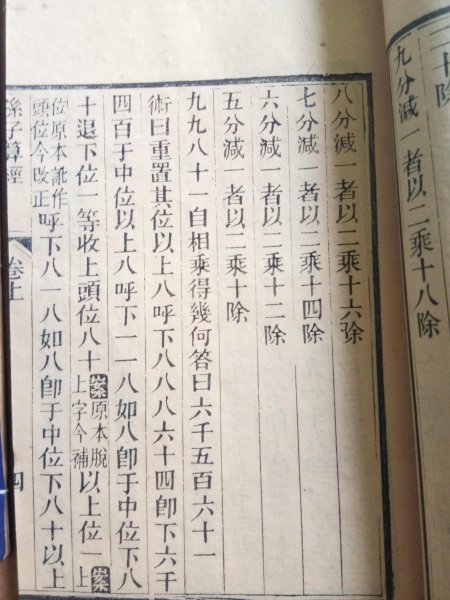 二十除
九分減一者以二乘十八除
八分減一者以二乘十六除
七分減一者以二乘十四除
六分減一者以二乘十二除
五分減一者以二乘十除
九九八十一自相乘得幾何答曰六千五百六十一
術曰重置其位以上八呼下八八八六十四卽下六千
四百于中位以上八呼下一一八如八卽于中位下八
十退下位一等收上頭位八十案原本脫上字今補以上位一案上
位原本訛作頭位今改正呼下八一八如八卽于中位下八十以上
孫子算經 卷上 四